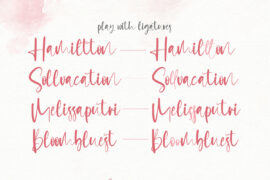 play with ligatures
Hamiltton Hamilllon
Sollvacation Sollvacation
Melissaputri Melissaputri
Bloombluest Bloombluest